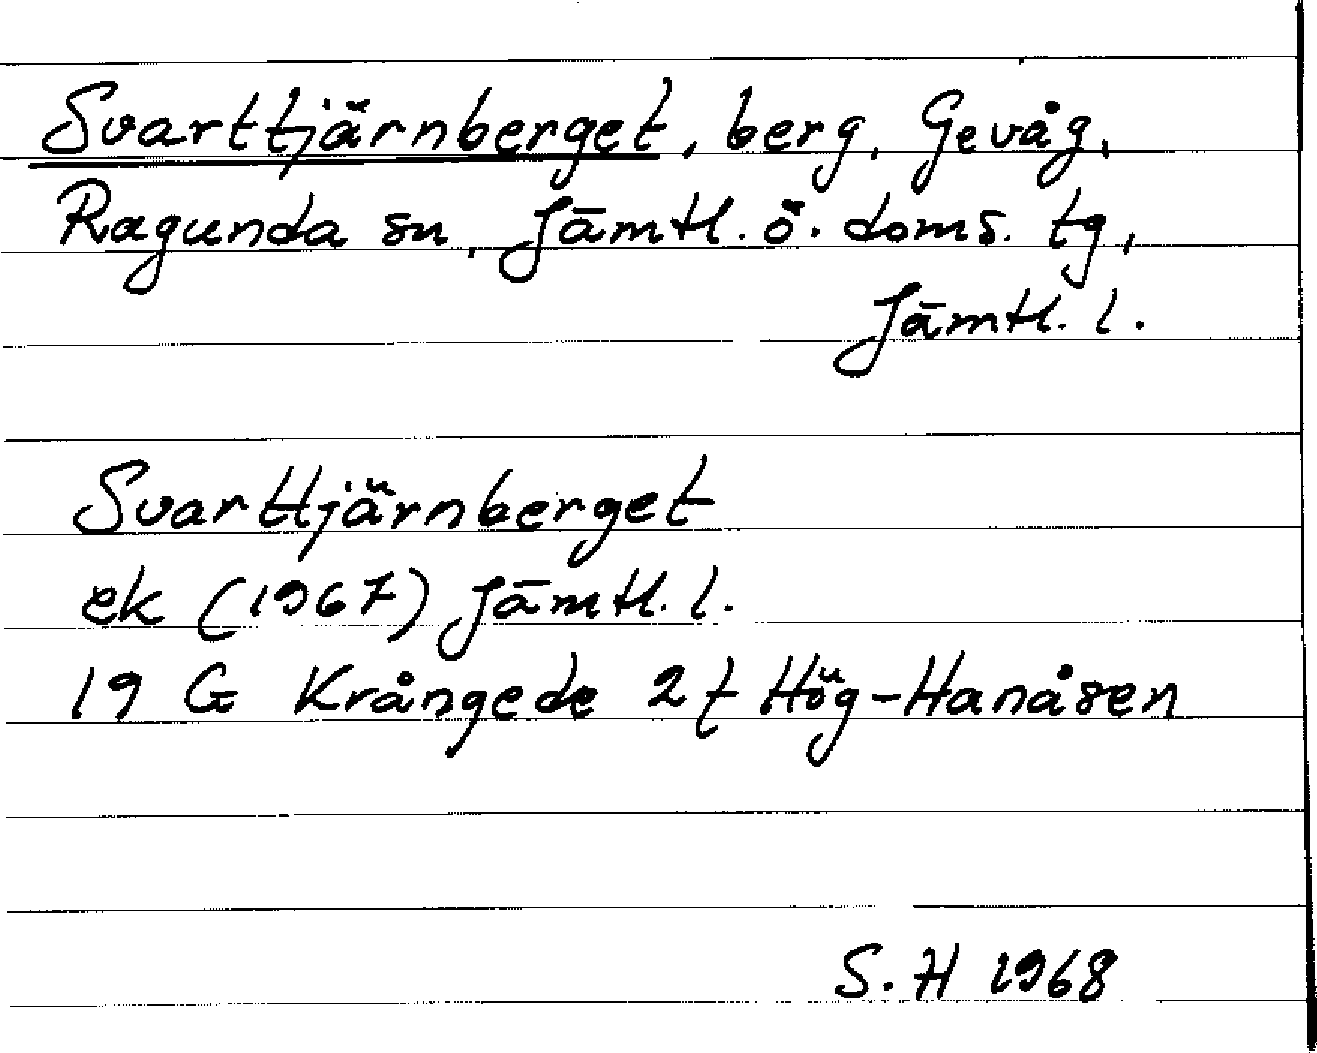 Svarttjärnberget, berg, Gevåg,
Ragunda sn, Jämtl. ö. doms. tg,
Jämtl. l.
Svarttjärnberget
ek (1967) Jämtl. l.
19 G Krångede 2f Hög-Hanåsen
S. H 1968